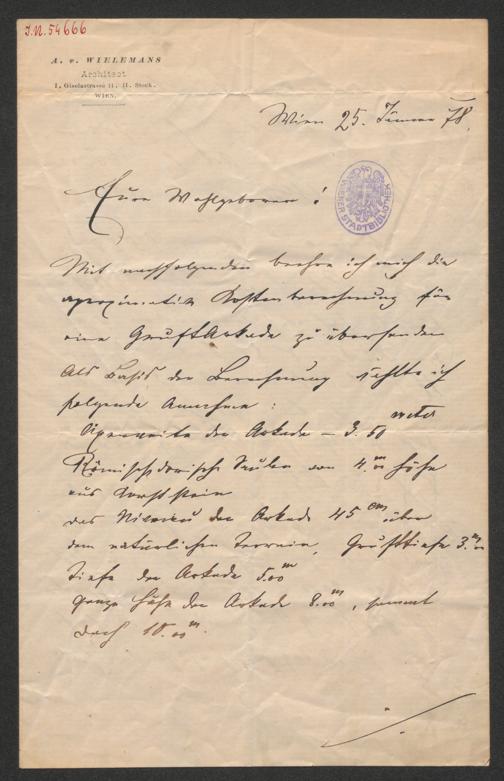 J.N. 54666
A. v. WIELEMANS
Architect
I. Giselastrasse 11. II. Stock.
WIEN.
Wien 25. Jänner 78.
WIENER STADTBIBLIOTHEK
Eure Wohlgeboren!
Mit nachfolgenden beehre ich mich die
aproximative Kostenberechnung für
eine GruftArkade zu übersenden
Als Basis der Berechnung stellte ich
folgende Annahme:
Axenweite der Arkade – 3.50 meter
Römischdorische Säulen von 4.00m höhe
aus Karststein
das Niveau der Arkade 45cm über
dem natürlichen Terrain, Grufttiefe 3.m
Tiefe der Arkade 5.00m
ganze Höhe der Arkade 8.00m, sammt
Dach 10.00m.